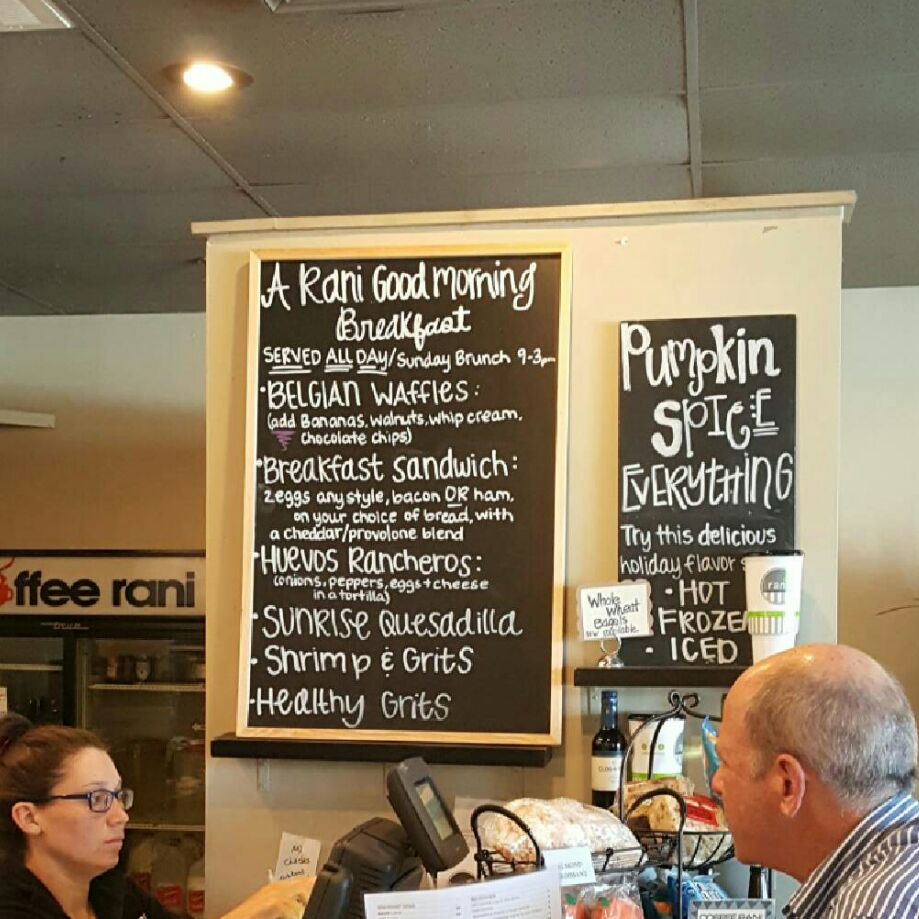 A Rani Good Morning
Breakfast
SERVED ALL DAY/Sunday Brunch 9-3pm
• BELGIAN WAFFLES:
(add Bananas, walnuts, whip cream,
chocolate chips)
• Breakfast Sandwich:
2 eggs any style, bacon OR ham,
on your choice of bread, with
a cheddar/provolone blend
• HUEVOS RANCHEROS:
(onions, peppers, eggs + cheese
in a tortilla)
• SUNRISE Quesadilla
• Shrimp & Grits
• Healthy Grits
Pumpkin
SPICE
EVERYTHING
Try this delicious
holiday flavor
• HOT
• FROZEN
• ICED
rani
Whole
Wheat
Bagels
now available
ffee rani